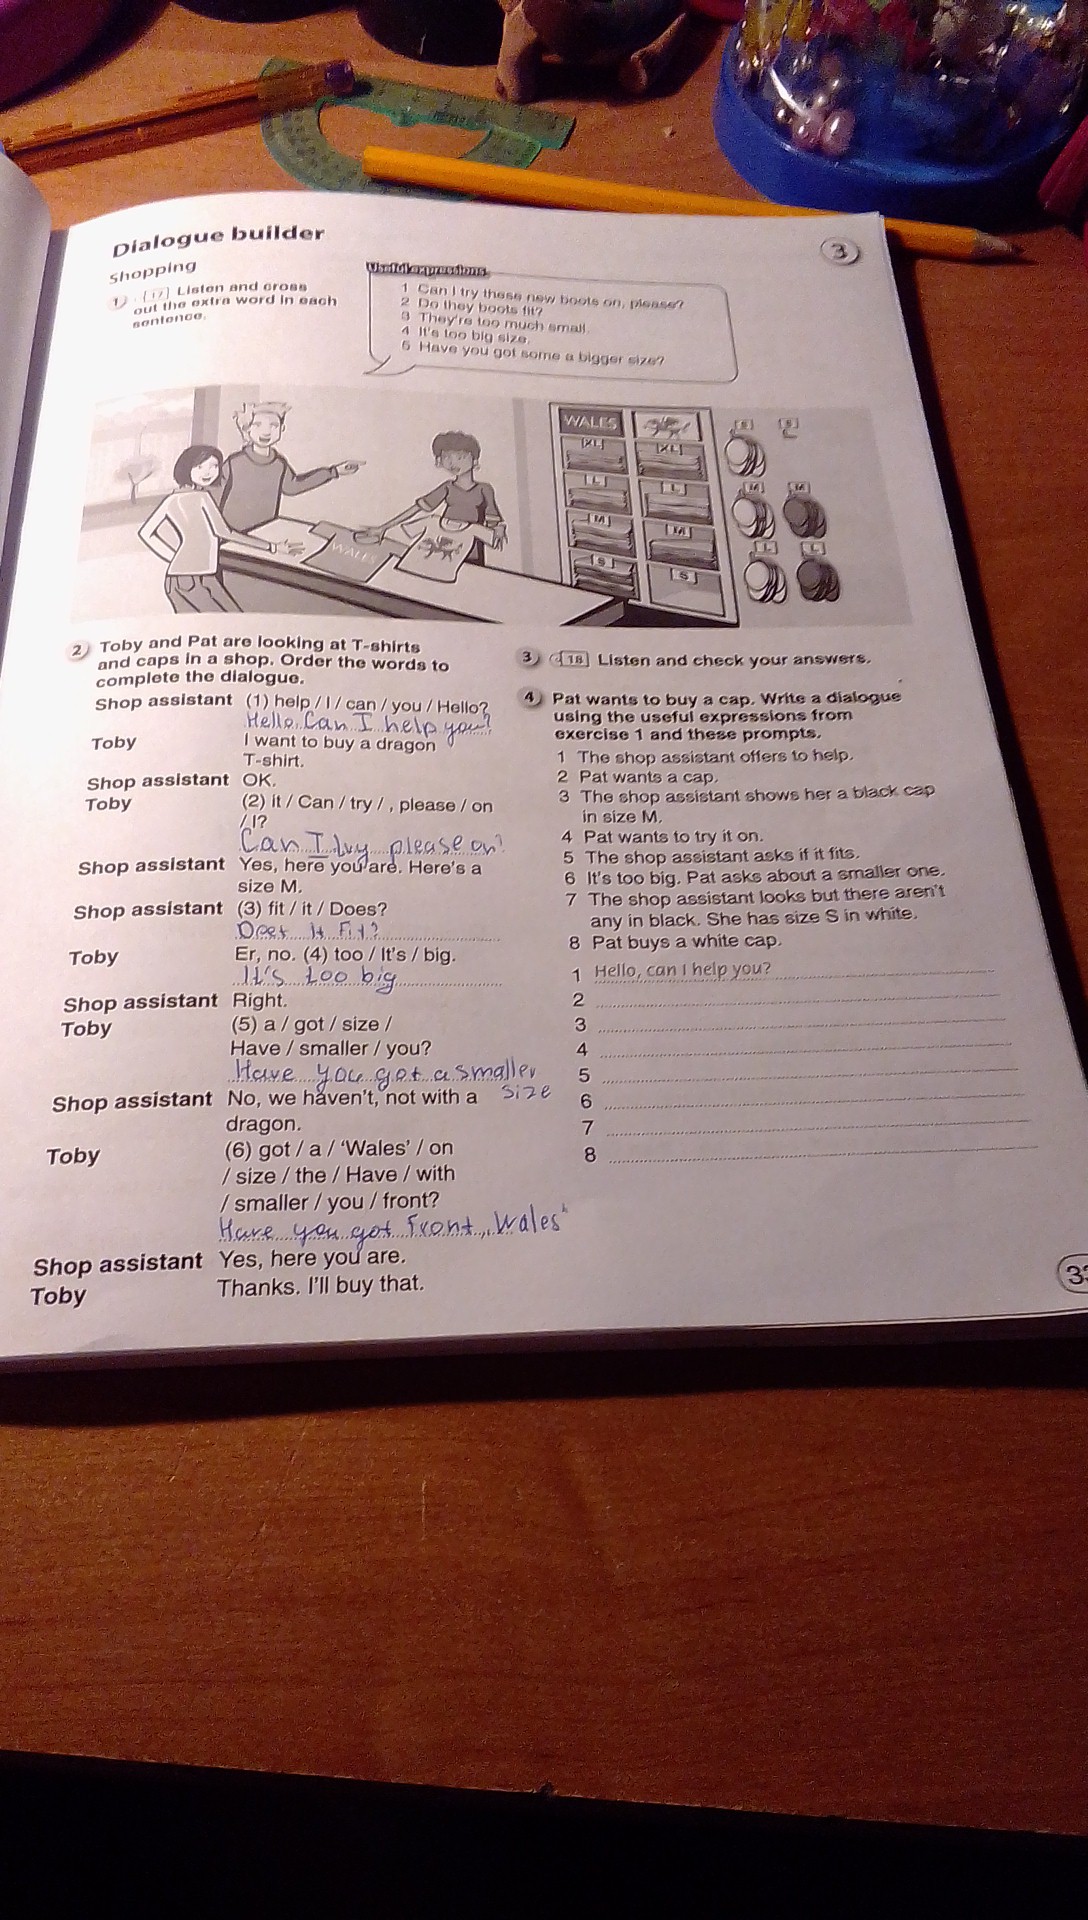 Dialogue builder
3
Shopping
1 17 Listen and cross
out the extra word in each
sentence.
Useful expressions
1 Can I try these new boots on, please?
2 Do they boots fit?
3 They're too much small.
4 It's too big size.
5 Have you got some a bigger size?
WALES
XL XL
L L
M M
S S
S S
M M
L L
WALES
2 Toby and Pat are looking at T-shirts
and caps in a shop. Order the words to
complete the dialogue.
Shop assistant (1) help / I / can / you / Hello?
Hello. Can I help you?
Toby I want to buy a dragon
T-shirt.
Shop assistant OK.
Toby (2) it / Can / try / , please / on
/ I?
Can I try please on?
Shop assistant Yes, here you are. Here's a
size M.
Shop assistant (3) fit / it / Does?
It Fit?
Toby Er, no. (4) too / It's / big.
It's too big
Shop assistant Right.
Toby (5) a / got / size /
Have / smaller / you?
Have you got a smaller
size
Shop assistant No, we haven't, not with a
dragon.
Toby (6) got / a / 'Wales' / on
/ size / the / Have / with
/ smaller / you / front?
Have you got Front „Wales"
Shop assistant Yes, here you are.
Toby Thanks. I'll buy that.
3 18 Listen and check your answers.
4 Pat wants to buy a cap. Write a dialogue
using the useful expressions from
exercise 1 and these prompts.
1 The shop assistant offers to help.
2 Pat wants a cap.
3 The shop assistant shows her a black cap
in size M.
4 Pat wants to try it on.
5 The shop assistant asks if it fits.
6 It's too big. Pat asks about a smaller one.
7 The shop assistant looks but there aren't
any in black. She has size S in white.
8 Pat buys a white cap.
1 Hello, can I help you?
2
3
4
5
6
7
8